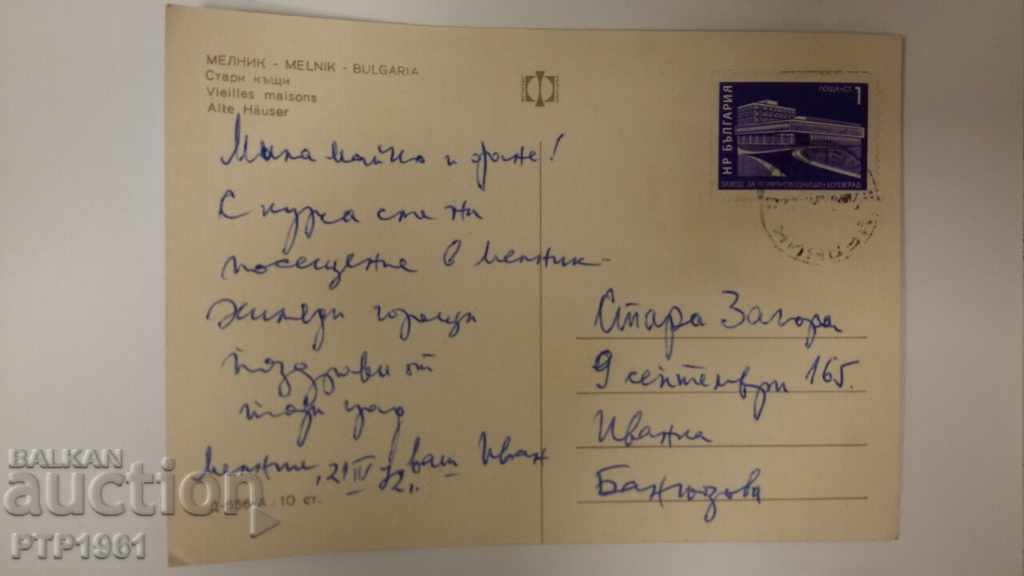 МЕЛНИК - MELNIK - BULGARIA
Стари къщи
Vieilles maisons
Alte Häuser
Мила майко и !
С курса сме на
посещение в Мелник-
Хиляди горещи
поздрави от
този град
Мелник, 21 IV 72. ваш Иван
Д-556-А 10 ст.
НР БЪЛГАРИЯ
ПОЩА СТ. 1
ЗАВОД ЗА БОТЕВГРАД
Стара Загора
9 септември 165.
Иванка
Бангьозова
BALKAN
auction
PTP1961